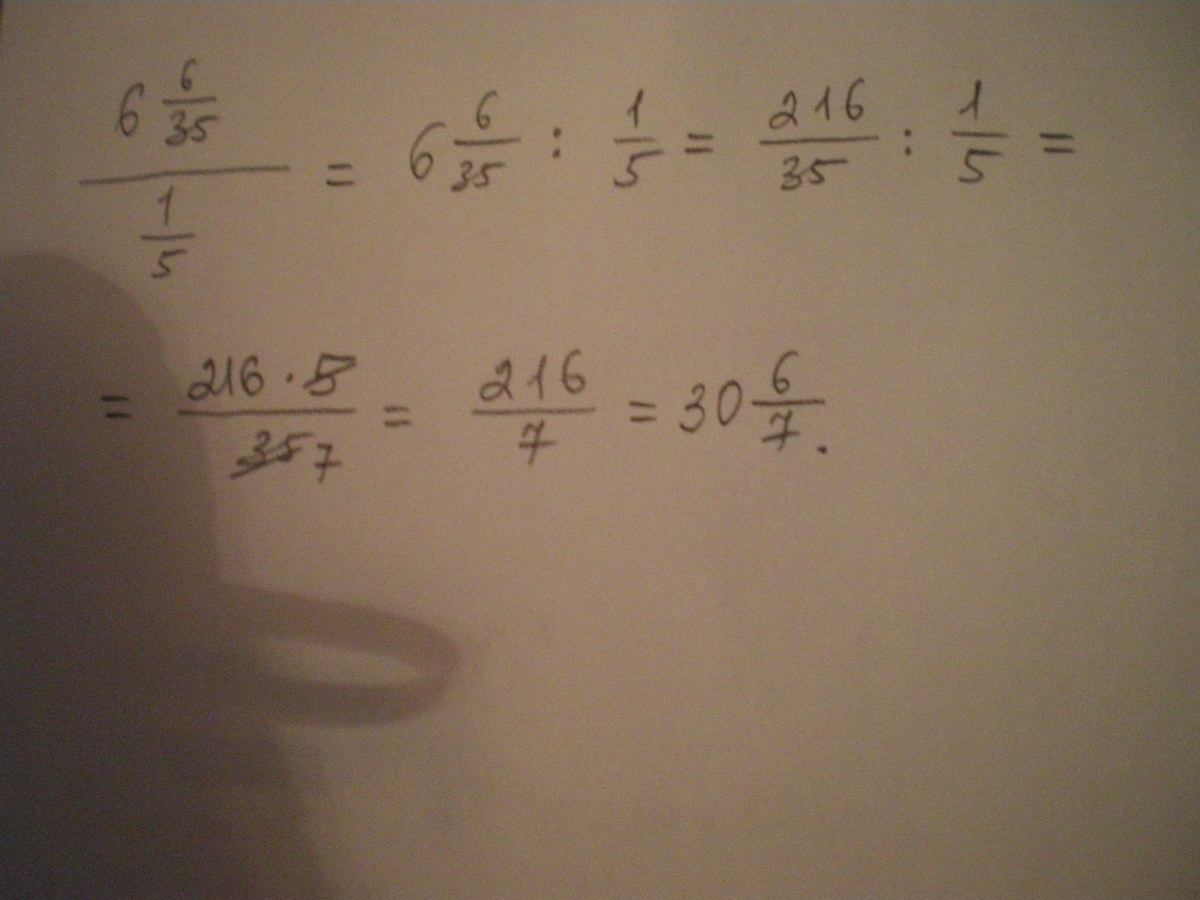 6 6/35 / 1/5 = 6 6/35 : 1/5 = 216/35 : 1/5 =
= 216 · 5/35 7 = 216/7 = 30 6/7.